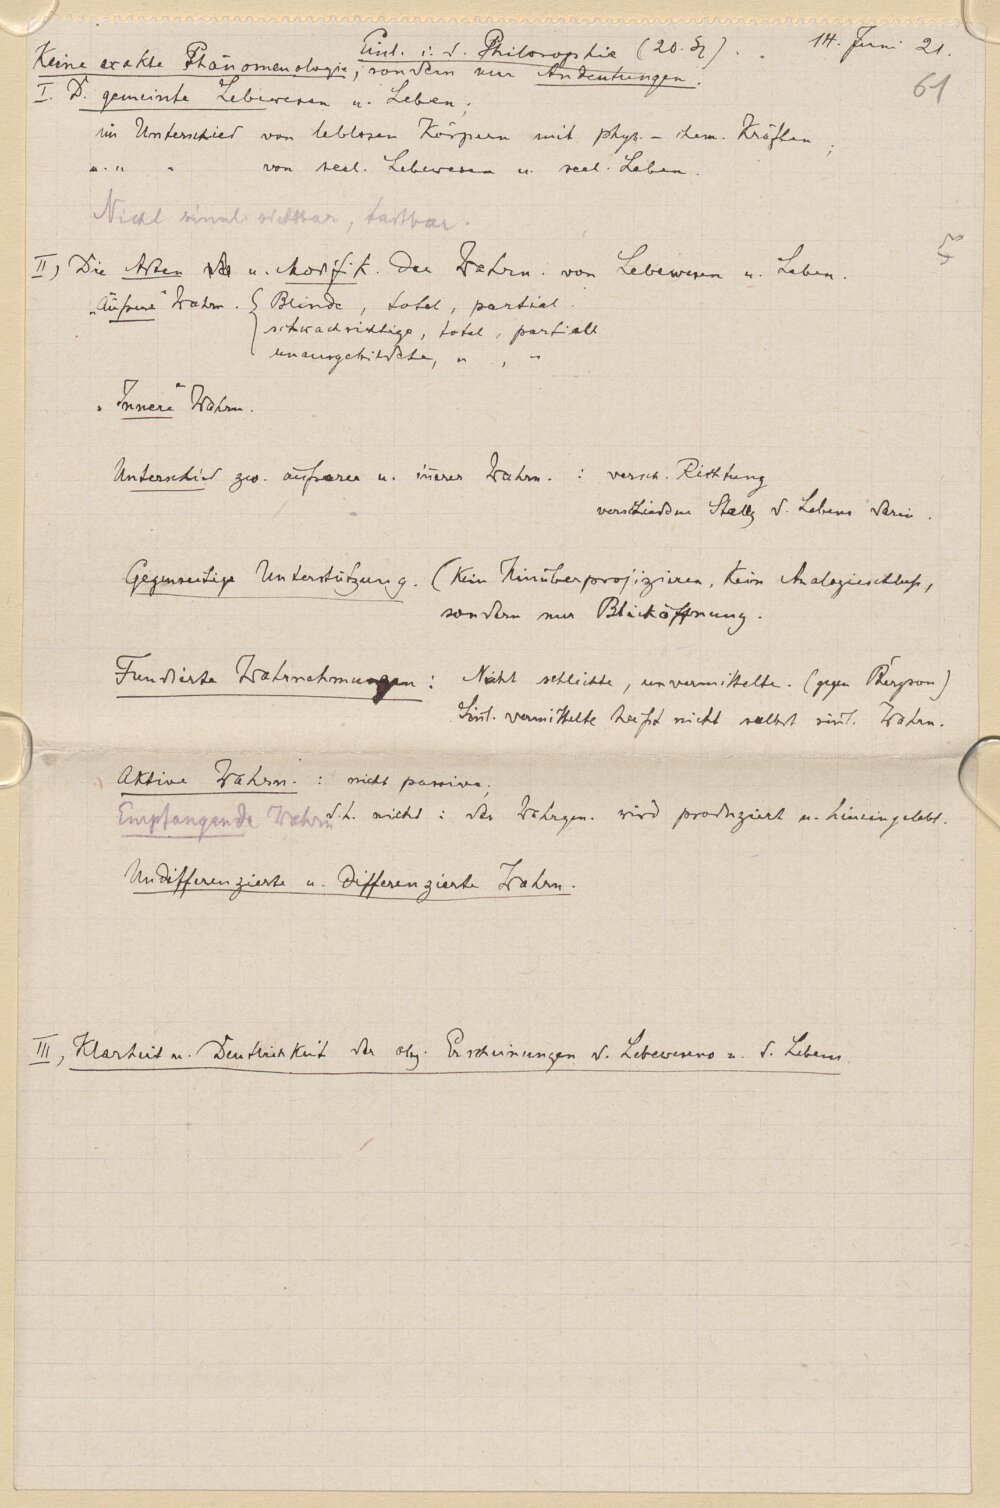 Einl. i. d. Philosophie (20. St). 14. Juni 21.
61
Keine exakte Phänomenologie, sondern nur Andeutungen.
I. D. gemeinte Lebewesen u. Leben;
im Unterschied von leblosen Körpern mit phys.-chem. Kräften;
u. " " von seel. Lebewesen u. seel. Leben.
Nicht sinnl. sichtbar, tastbar.
II, Die Arten u. Modifik. der Wahrn. von Lebewesen u. Leben.
„Äußere" Wahrn. { Blinde, total, partial
schwachsichtige, total, partiell
unausgebildete, " , "
„Innere" Wahrn.
Unterschied zw. äußerer u. innerer Wahrn. : versch. Richtung
verschiedene Stellg d. Lebens darin.
Gegenseitige Unterstützung. (Kein Hinüberprojizieren, kein Analogieschluß,
sondern nur Blicköffnung.
Fundierte Wahrnehmungen: Nicht schlichte, unvermittelte. (gegen Bergson)
Sinl. vermittelte heißt nicht selbst sinl. Wahrn.
Aktive Wahrn. : nicht passive;
Empfangende Wahrn d.h. nicht: das Wahrgen. wird produziert u. hineingelebt.
Undifferenzierte u. differenzierte Wahrn.
III, Klarheit u. Deutlichkeit der obj. Erscheinungen d. Lebewesens u. d. Lebens.